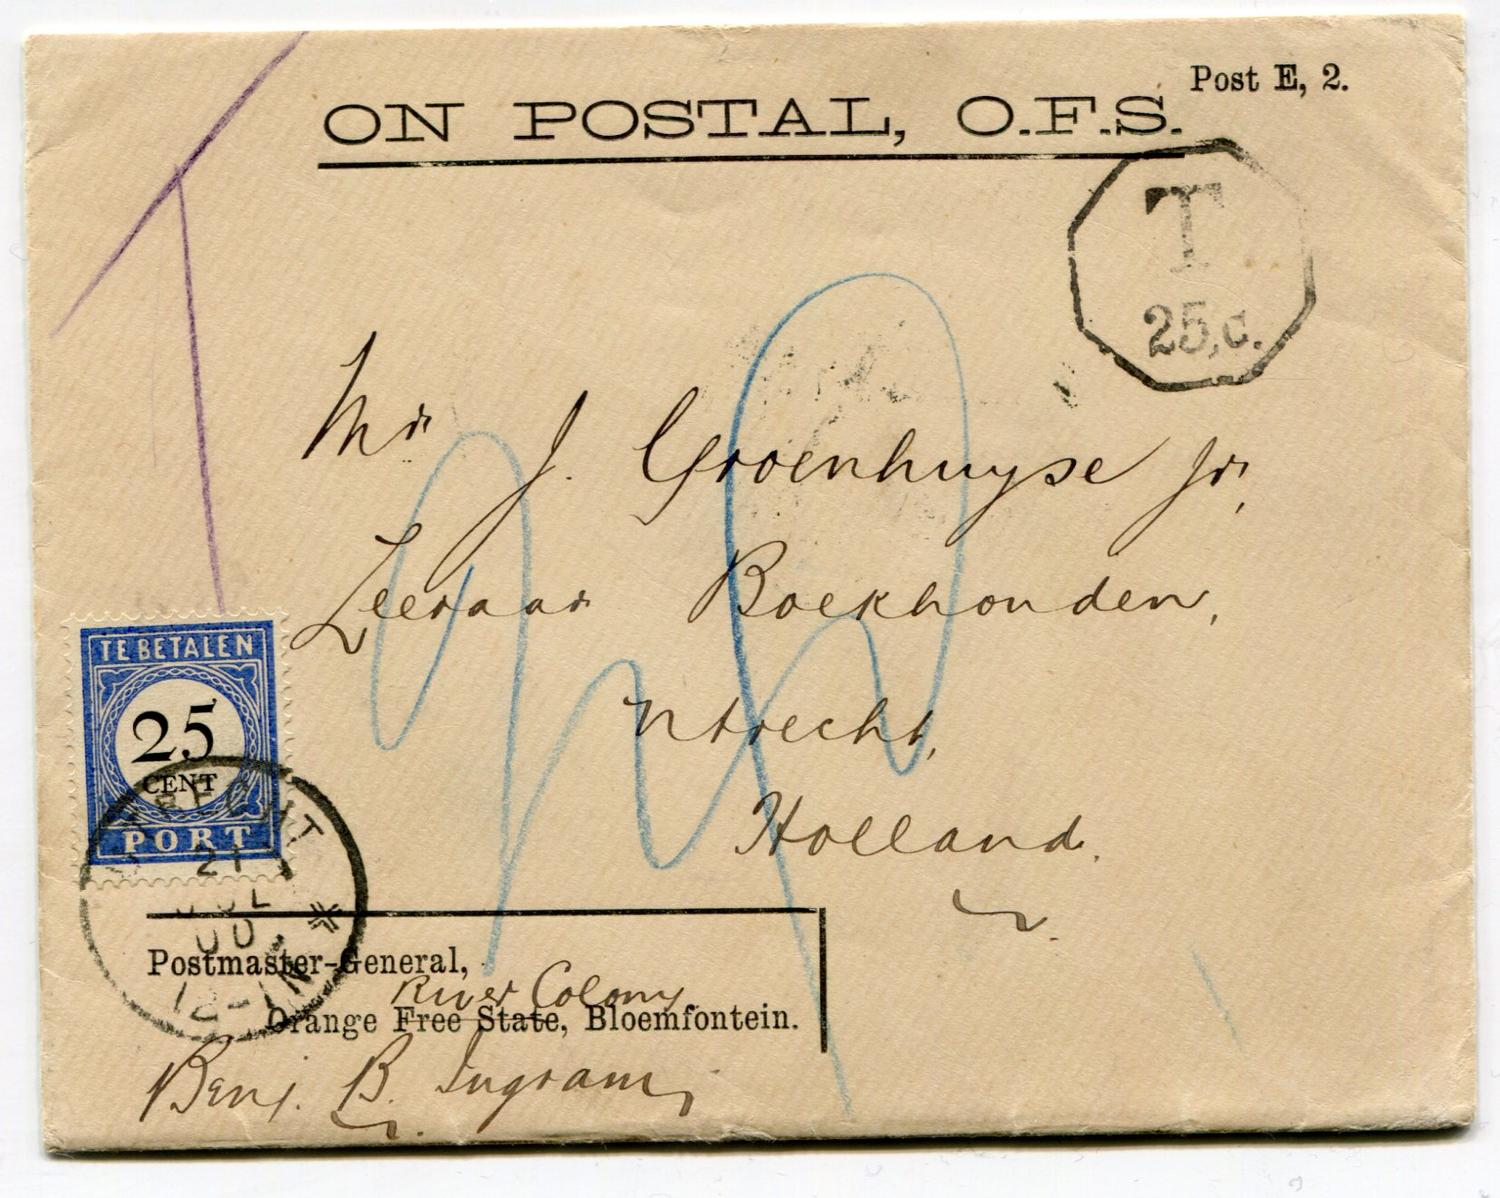 Post E, 2.
ON POSTAL, O.F.S.
T
25,c.
Mr J. Groenhuyse Jr,
Leeraar Boekhouden,
Utrecht,
Holland.
TE BETALEN
25
CENT
PORT
UTRECHT
21
JUL
00
12-1N
Postmaster-General,
River Colony
Orange Free State, Bloemfontein.
Benj. B. Ingram